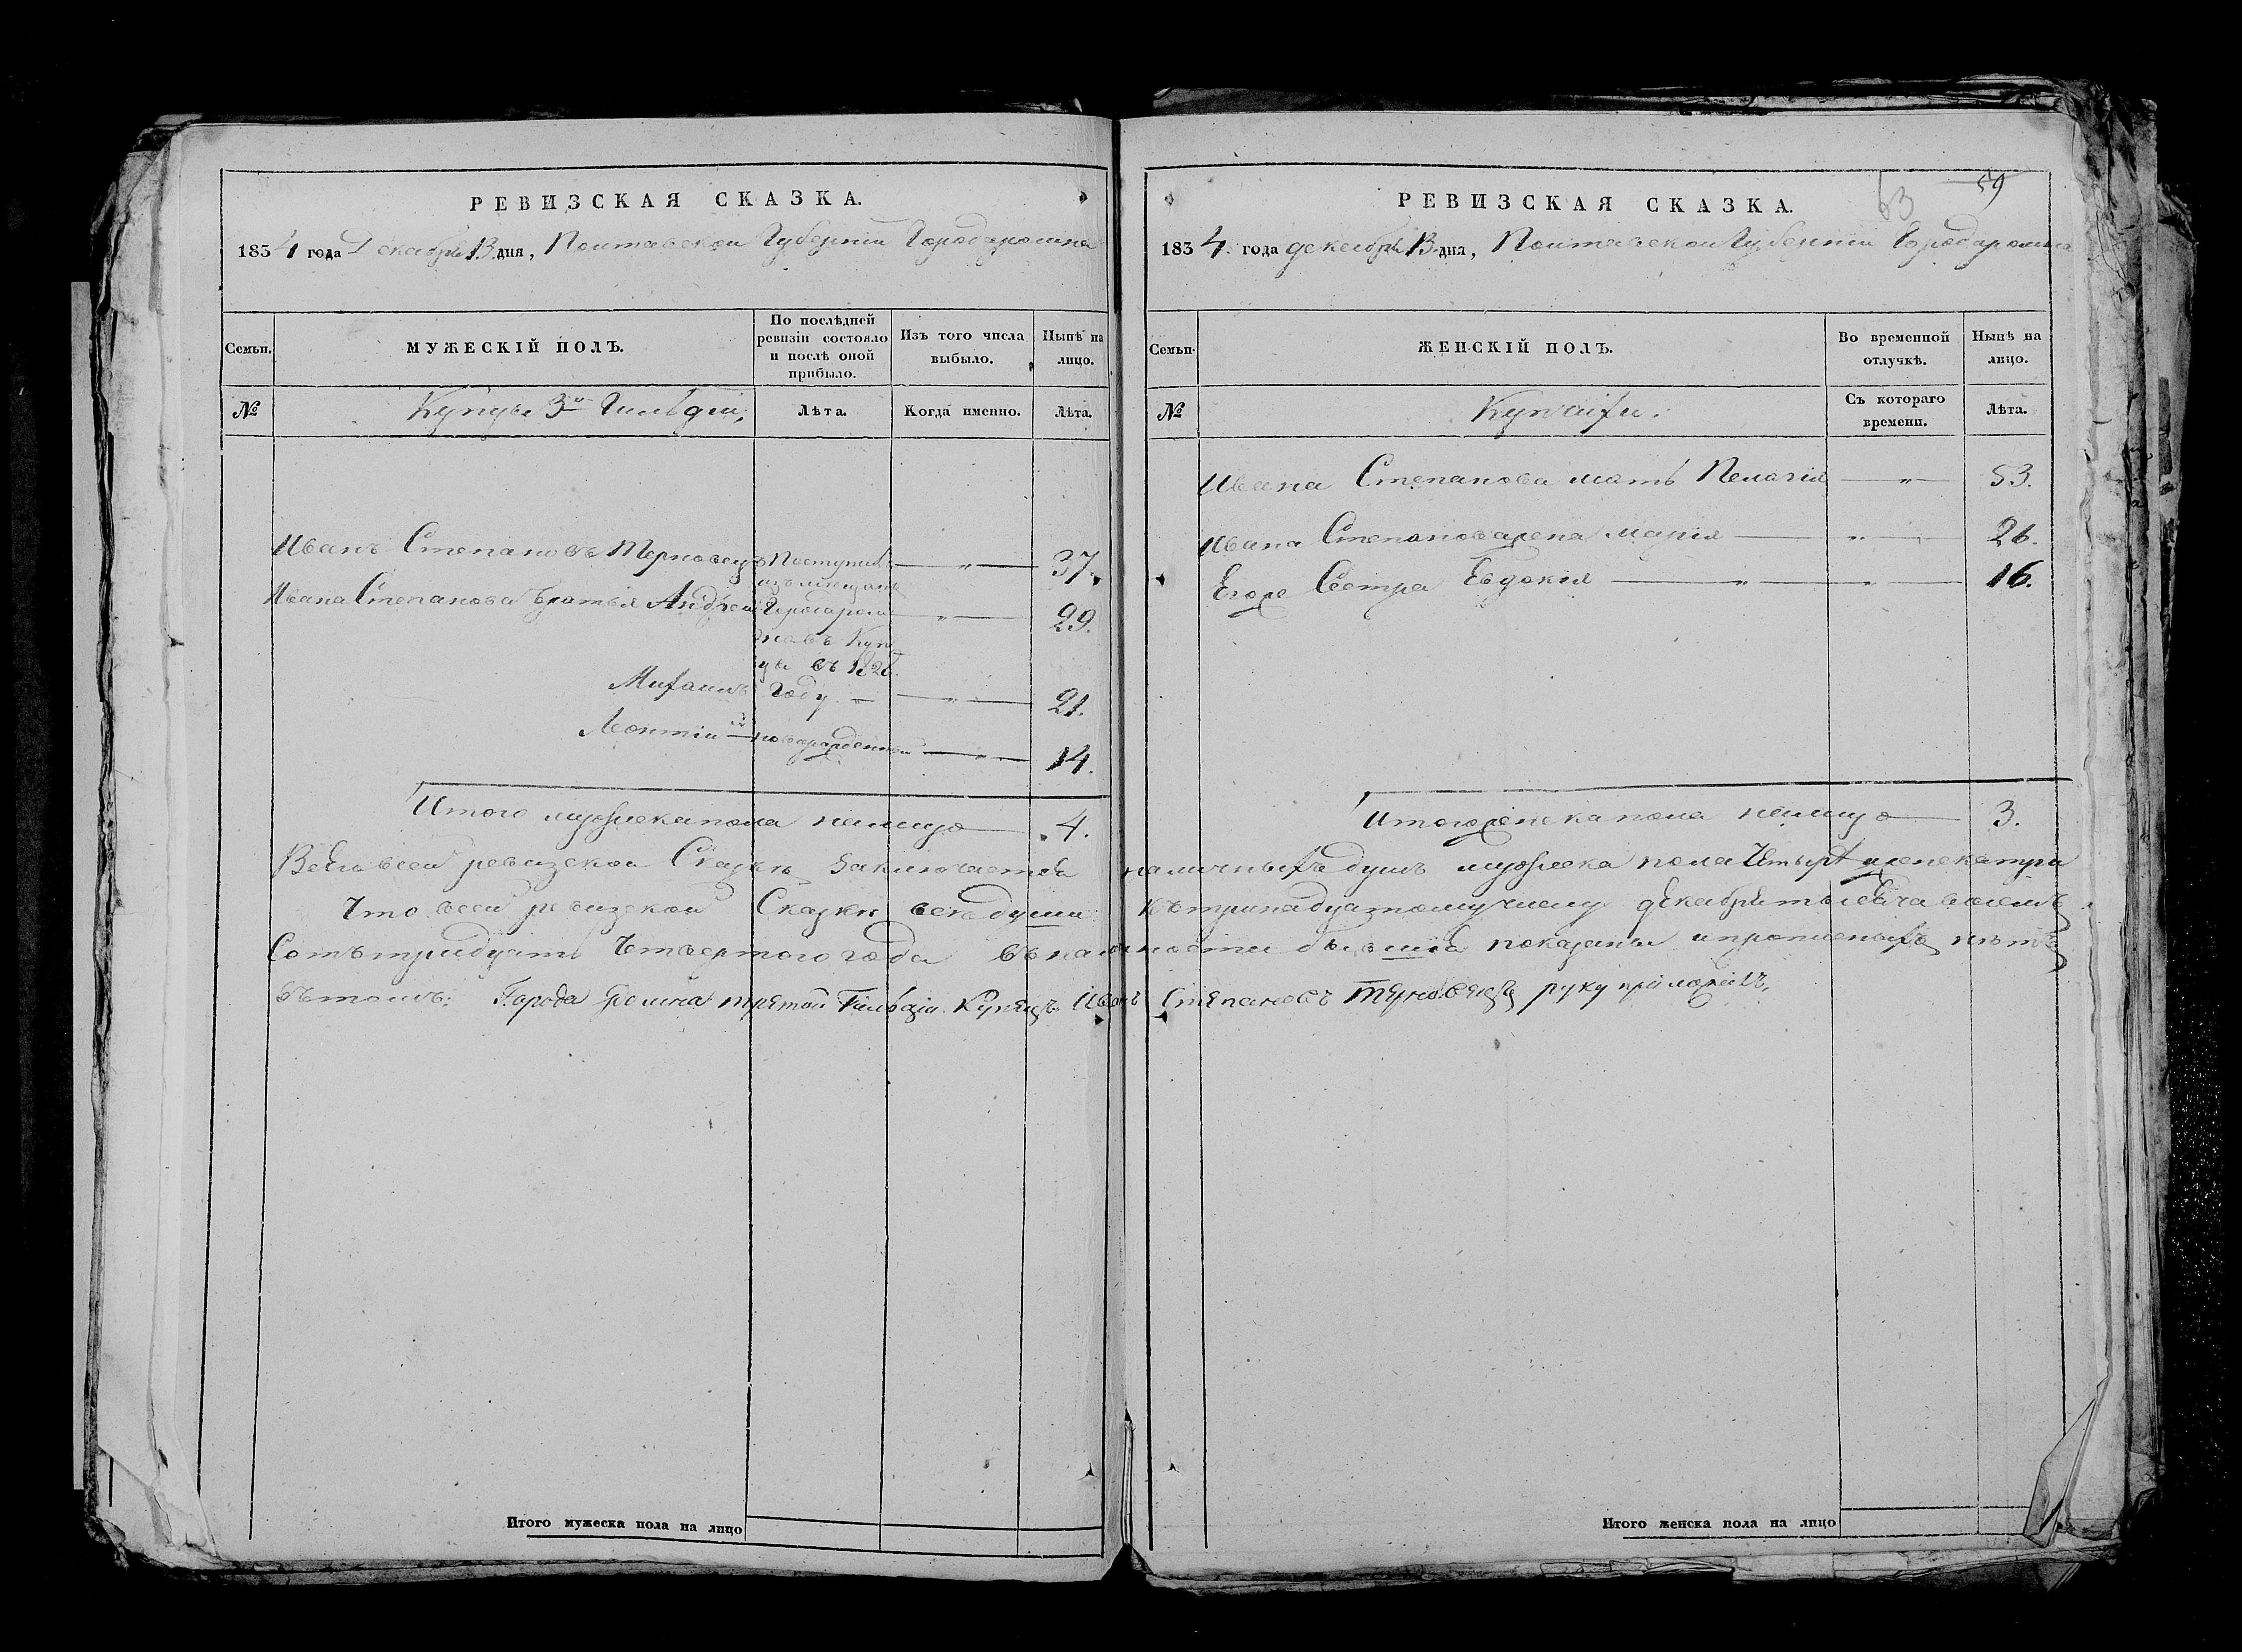 РЕВИЗСКАЯ СКАЗКА.
1834 года Декабря 13 дня, Полтавской Губерніи Города ромна
Семьи.
МУЖЕСКІЙ ПОЛЪ.
По послѣдней ревизіи состояло и послѣ оной прибыло.
Изъ того числа выбыло.
Нынѣ на лицо.
№
Купцы 3й Гильдіи,
Лѣта.
Когда именно.
Лѣта.
Иванъ Степановъ Терновецъ Поступив 37.
из мещанъ
Ивана Степанова братья Андрей Города ром 29.
на въ Куп
цы съ 1826
Михаилъ году. 21.
Леонтий новорожденный 14.
Итого мужеска пола налицо 4.
РЕВИЗСКАЯ СКАЗКА.
63 59
1834 года декабря 13 дня, Полтавской Губерніи Города ромна
Семьи.
ЖЕНСКІЙ ПОЛЪ.
Во временной отлучкѣ.
Нынѣ на лицо.
№
Купчихи.
Съ котораго времени.
Лѣта.
Ивана Степанова мать Пелагія 53.
Ивана Степанова жена Марія 26.
Егоже Сестра Евдокія 16.
Итого женска пола налицо 3.
Всего в сей ревизской Сказке заключается наличныхъ душъ мужеска пола Четыре и женска три
Что в сей ревизской Сказки все души къ тринадцатому числу декабря тысяча восемь
Сотъ тридцать Четвертого года в наличности бывшia показаны и прописныхъ нетъ
въ томъ: Города Ромна третой Гильдіи Купецъ Иванъ Степановъ Терновецъ руку приложилъ,
Итого мужеска пола на лицо
Итого женска пола на лицо